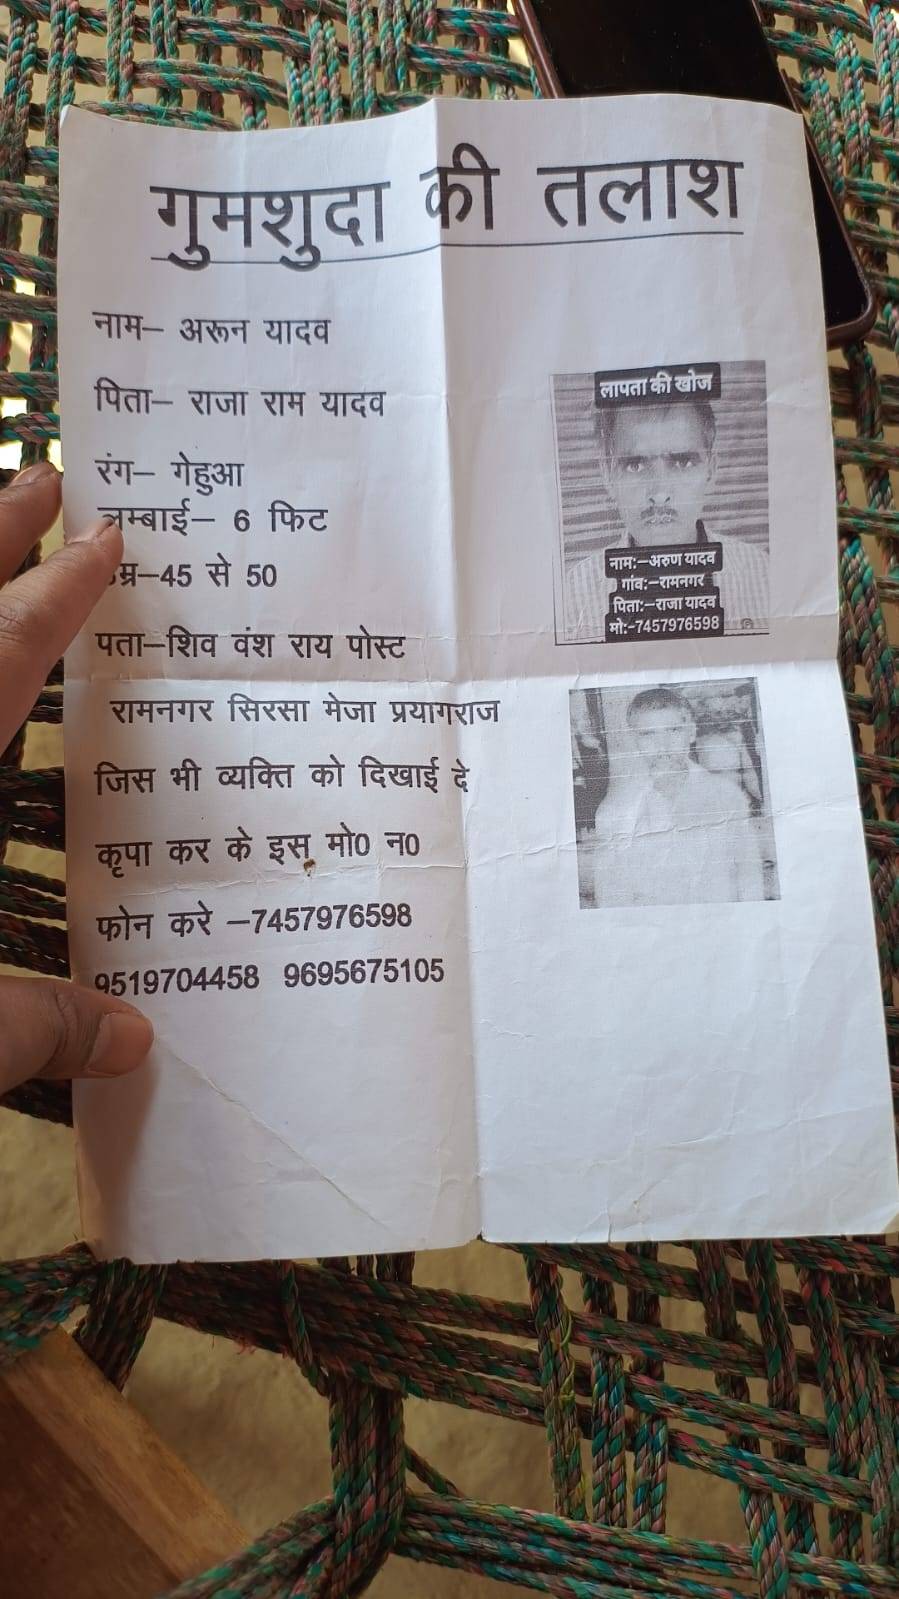 गुमशुदा की तलाश
नाम– अरून यादव
पिता– राजा राम यादव
रंग– गेहुआ
लम्बाई– 6 फिट
म्र–45 से 50
पता–शिव वंश राय पोस्ट
रामनगर सिरसा मेजा प्रयागराज
जिस भी व्यक्ति को दिखाई दे
कृपा कर के इस मो0 न0
फोन करे –7457976598
9519704458 9695675105
लापता की खोज
नाम:–अरुण यादव
गांव:–रामनगर
पिता:–राजा यादव
मो:-7457976598